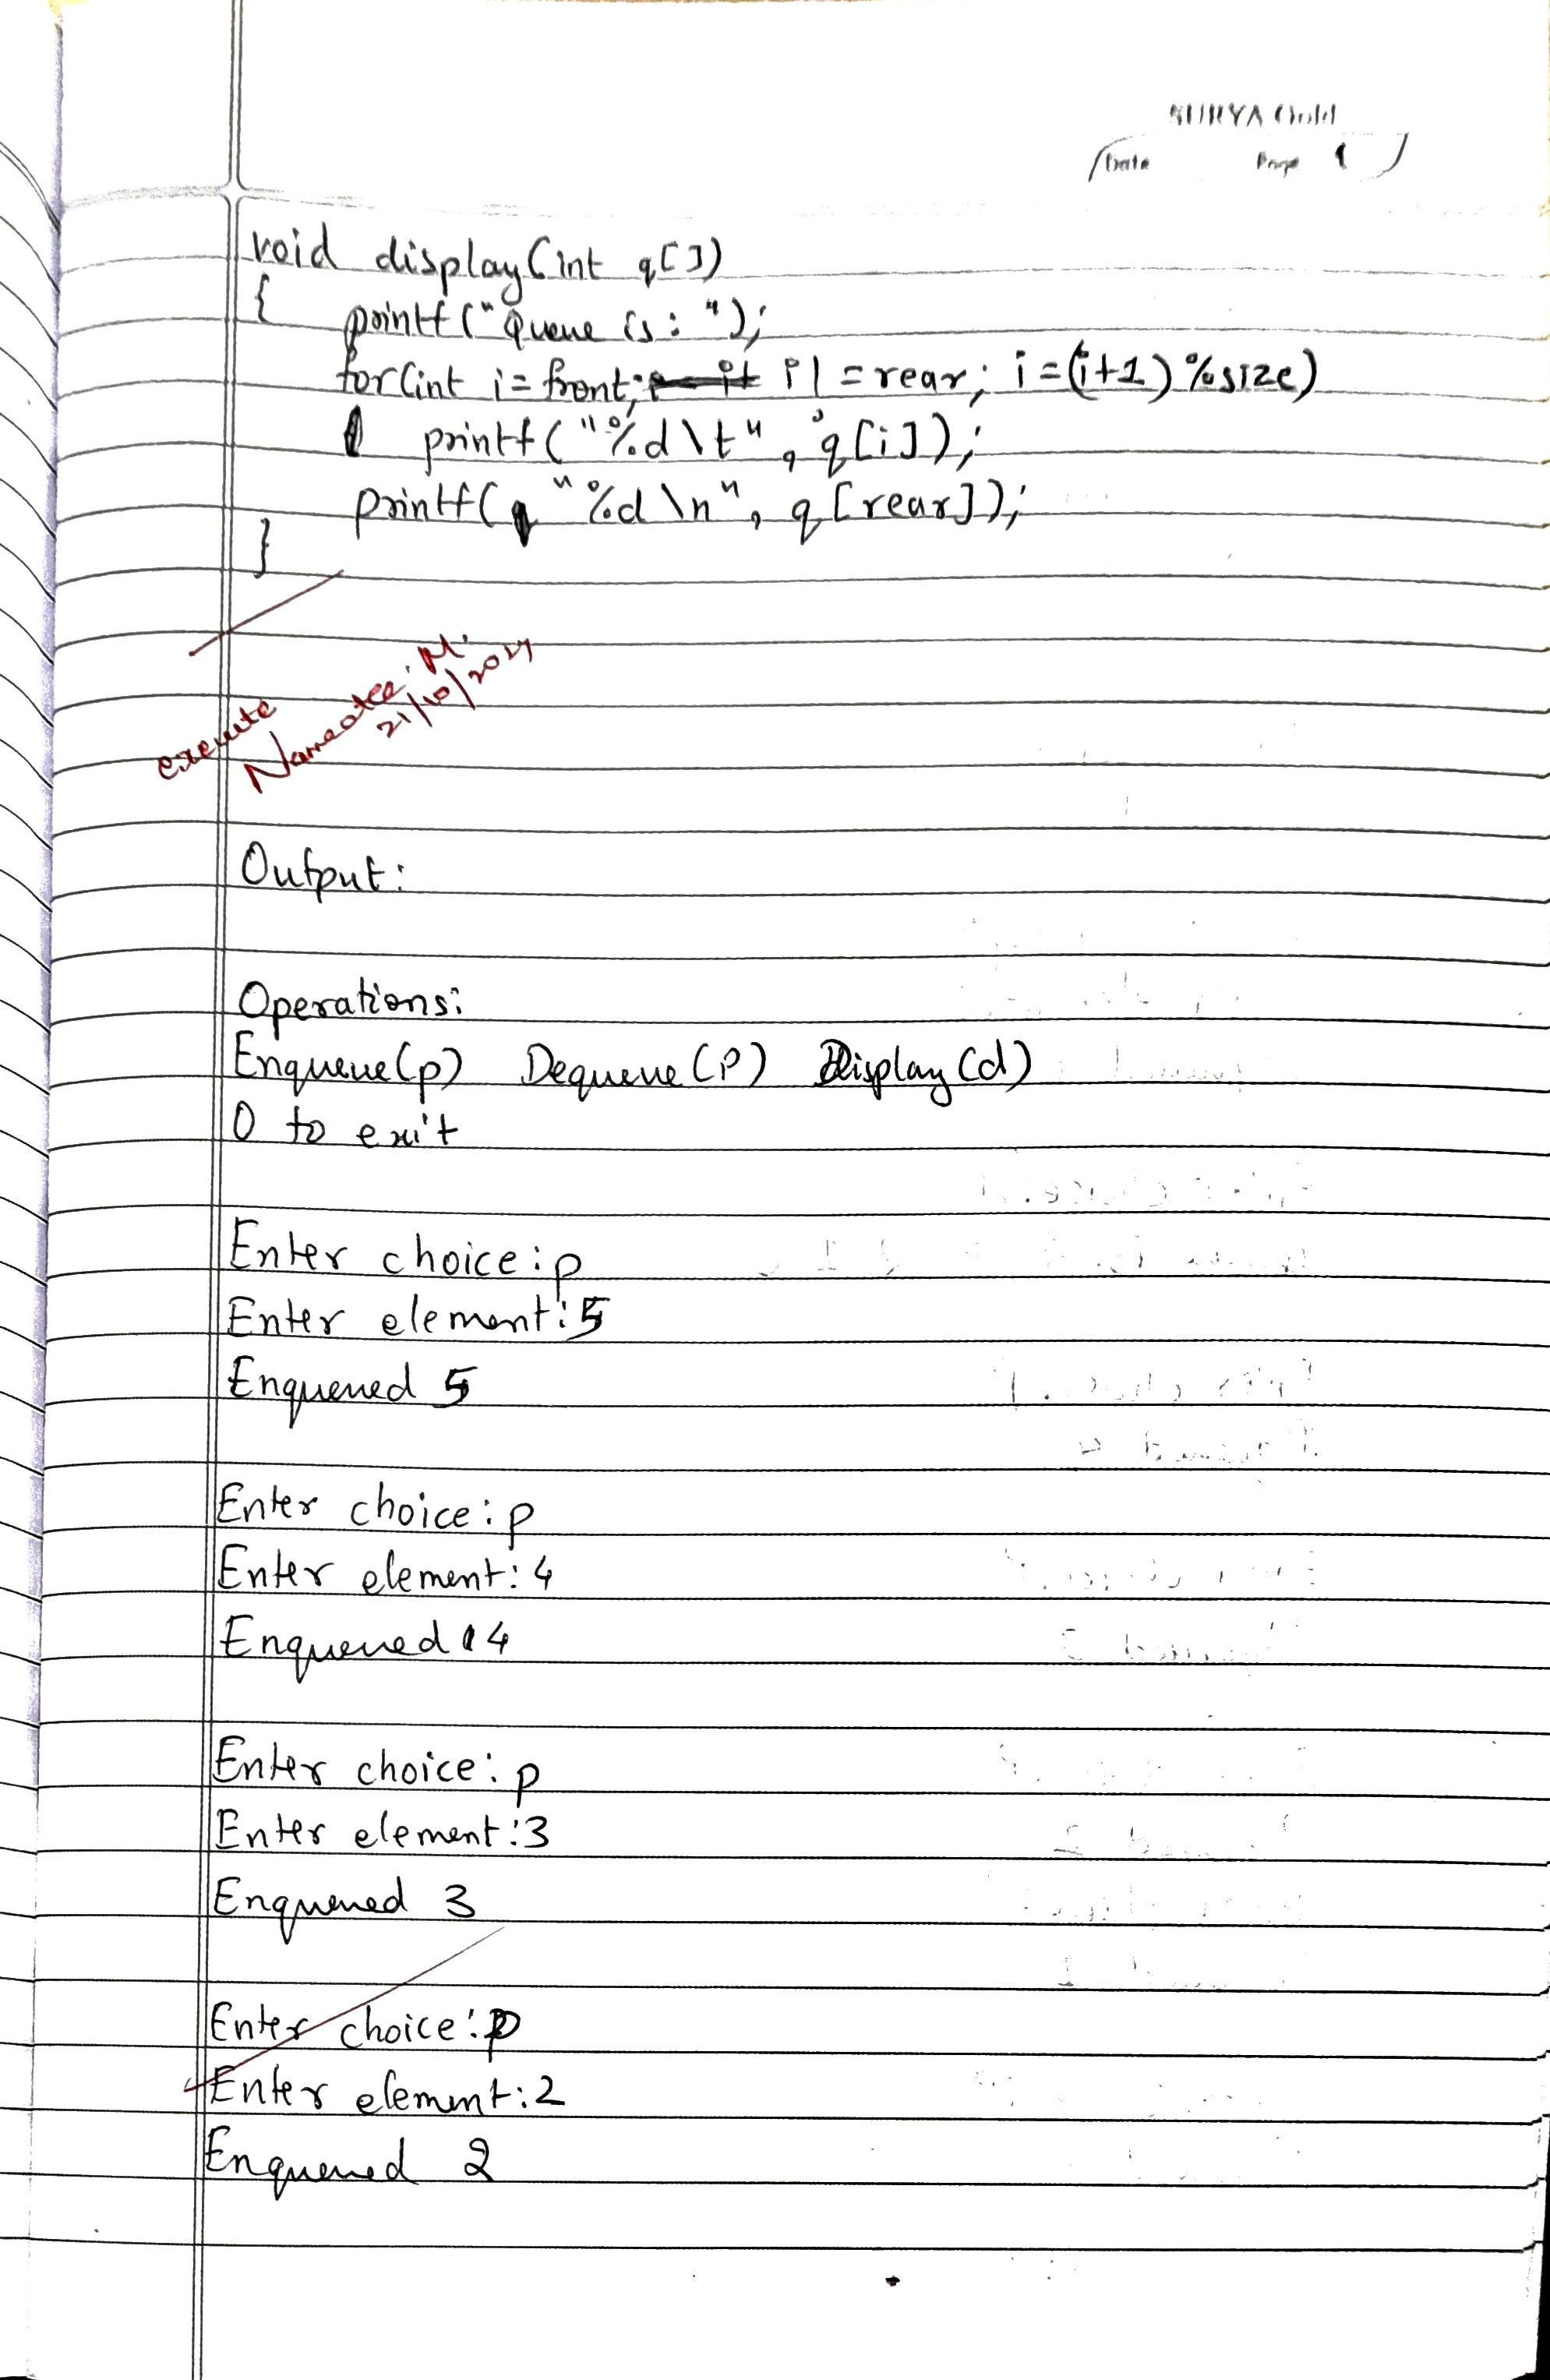 SURYA Gold
Date Page
void display(int q[])
{ printf("Queue is: ");
for(int i=front; i!=rear; i=(i+1)%size)
printf("%d\t", q[i]);
printf("%d\n", q[rear]);
}
execute
21/10/2024
Output:
Operations:
Enqueue(p) Dequeue(P) Display(d)
0 to exit
Enter choice:p
Enter element:5
Enqueued 5
Enter choice:p
Enter element:4
Enqueued 4
Enter choice:p
Enter element:3
Enqueued 3
Enter choice:p
Enter element:2
Enqueued 2